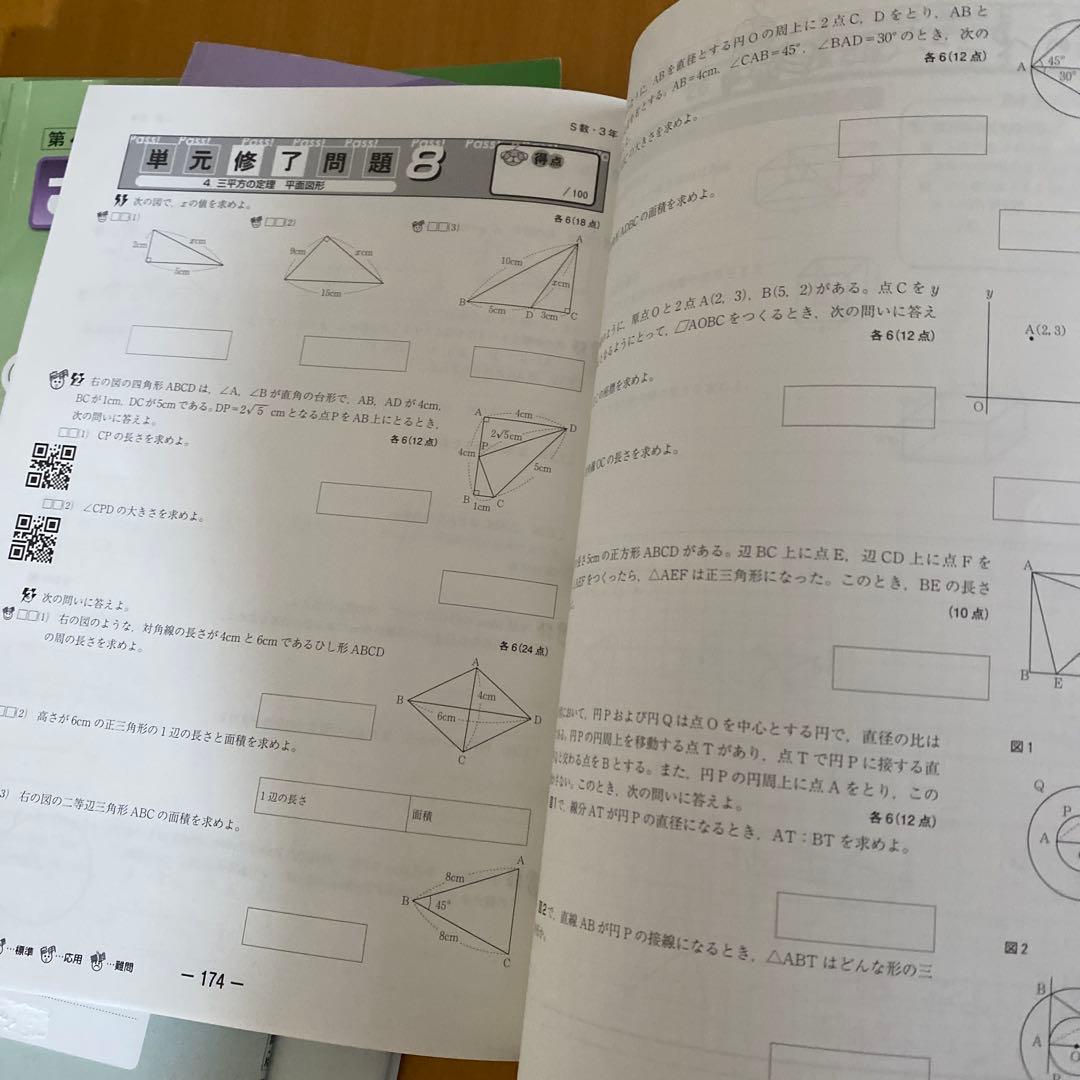 第
S数・3年
Pass! Pass! Pass! Pass! Pass! Pass!
単元修了問題 8
4. 三平方の定理 平面図形
得点
/100
次の図で、xの値を求めよ。
各6(18点)
□□(1)
□□(2)
□□(3)
2cm
xcm
5cm
9cm
xcm
15cm
A
10cm
xcm
B
5cm
D
3cm
C
2 右の図の四角形ABCDは、∠A、∠Bが直角の台形で、AB、ADが4cm、
BCが1cm、DCが5cmである。DP=2√5 cmとなる点PをAB上にとるとき、
次の問いに答えよ。
各6(12点)
□□(1) CPの長さを求めよ。
A
4cm
D
2√5cm
P
4cm
5cm
B
1cm
C
□□(2) ∠CPDの大きさを求めよ。
3 次の問いに答えよ。
各6(24点)
□□(1) 右の図のような、対角線の長さが4cmと6cmであるひし形ABCD
の周の長さを求めよ。
A
B
4cm
6cm
D
C
□□(2) 高さが6cmの正三角形の1辺の長さと面積を求めよ。
1辺の長さ
面積
3) 右の図の二等辺三角形ABCの面積を求めよ。
A
8cm
B
45°
8cm
C
…標準 …応用 …難問
― 174 ―
ABを直径とする円Oの周上に2点C、Dをとり、ABと
とする。AB=4cm、∠CAB=45°、∠BAD=30°のとき、次の
各6(12点)
の大きさを求めよ。
A
45°
30°
ADBCの面積を求めよ。
ように、原点Oと2点A(2, 3)、B(5, 2)がある。点Cをy
なるようにとって、▱AOBCをつくるとき、次の問いに答え
各6(12点)
の座標を求めよ。
y
A(2, 3)
O
線OCの長さを求めよ。
長さ5cmの正方形ABCDがある。辺BC上に点E、辺CD上に点Fを
AEFをつくったら、△AEFは正三角形になった。このとき、BEの長さ
(10点)
A
B
E
において、円Pおよび円Qは点Oを中心とする円で、直径の比は
ある。円Pの円周上を移動する点Tがあり、点Tで円Pに接する直
と交わる点をBとする。また、円Pの円周上に点Aをとり、この
ない。このとき、次の問いに答えよ。
各6(12点)
図1で、線分ATが円Pの直径になるとき、AT:BTを求めよ。
図1
Q
P
A
図2で、直線ABが円Pの接線になるとき、△ABTはどんな形の三
図2
B
A
O